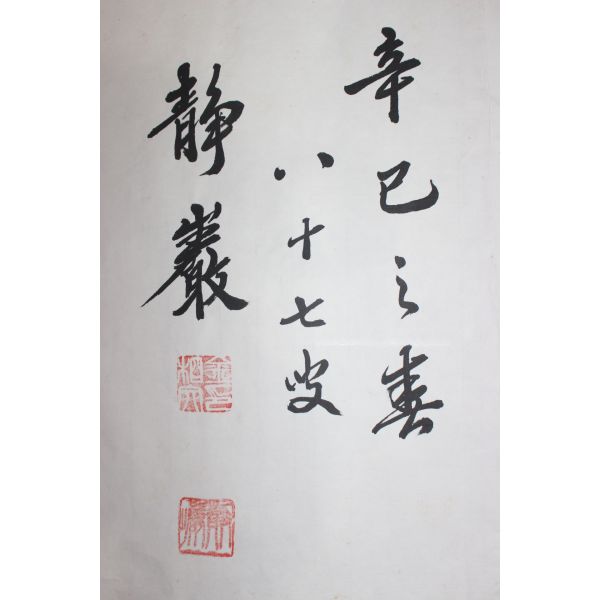 辛巳之春
八十七叟
静巖